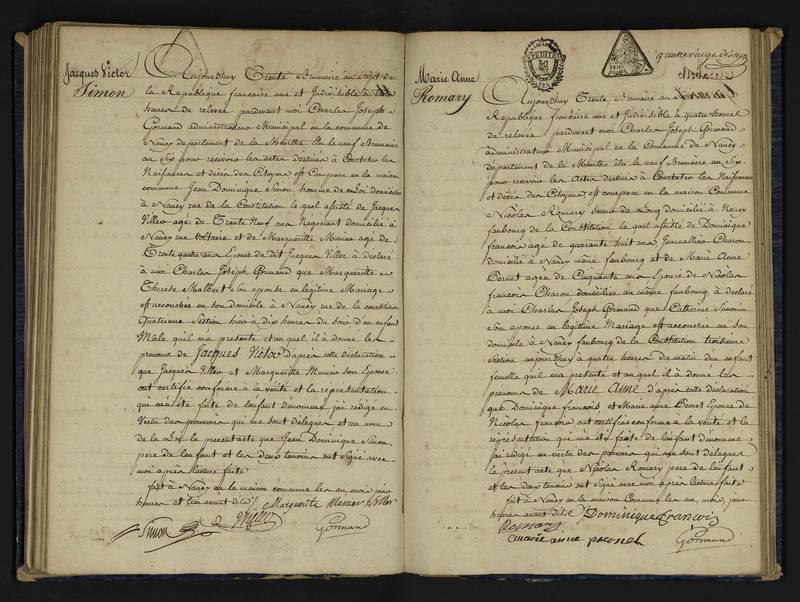 Jacques Victor
Simon
Aujourdhuy Trente Brumaire an Sept de
la Republique francaise une et Indivisible à
heures de relevée pardevant moi Charles Joseph
Gormand administrateur Municipal en la commune de
Nancy departement de la Meurthe Elu le neuf Brumaire
an Six pour recevoir les actes destinés à Constater les
Naissances et décès des Citoyens est Comparu en la maison
commune Jean Dominique Simon homme de Loi domicilié
à Nancy rue de la Constitution le quel assisté de Jacques
Viller agé de Trente Neuf ans Negociant domicilié à
Nancy rue Voltaire et de Margueritte Munier agée de
Trente quatre ans Epouse du dit Jacques Viller à déclaré
à moi Charles Joseph Gormand que Margueritte
Therese Malbert Son épouse en legitime Mariage
est accouchée en son domicile à Nancy rue de la constitution
Quatrieme Section hier à dix heures du soir d'un enfant
Male qu'il m'a presenté et au quel il à donné les
prenoms de Jacques Victor d'après cette déclaration
que Jacques Viller et Margueritte Munier son Epouse
ont certifiée conforme à la vérité et la réprésentation
qui m'a été faite de l'enfant dénommé j'ai rédigé en
Vertu des pouvoirs qui me sont délégués et au nom
de la Loi le present acte que Jean Dominique Simon
pere de l'enfant et les deux temoins ont Signé avec
moi après lecture faite
fait à Nancy en la maison commune les an mois jour
heures et lieu avant dits Marguerite Munier Viller
Simon Viller Gormand
Marie Anne
Romary
Aujourdhuy Trente Brumaire an
Republique francaise une et Indivisible à quatre heures
de relevée pardevant moi Charles Joseph Gormand
administrateur Municipal en la Commune de Nancy
departement de la Meurthe Elu le neuf Brumaire an Six
pour recevoir les Actes destinés à Constater les Naissances
et décès des Citoyens, est comparu en la maison Commune
Nicolas Romary domicilié à Nancy
faubourg de la Constitution le quel assisté de Dominique
francois agé de quarante huit ans Journallier Charon
domicilié à Nancy même faubourg et de Marie Anne
Pernet agée de Cinquante ans Epouse de Nicolas
francois Charon domiciliée au même faubourg à déclaré
à moi Charles Joseph Gormand que Catherine
Son épouse en legitime Mariage est accouchée en son
domicile à Nancy faubourg de la Constitution troisieme
Section aujourdhuy à quatre heures du matin d'un enfant
femelle qu'il m'a presenté et au quel il à donné les
prenoms de Marie Anne d'après cette déclaration
que Dominique francois et Marie anne Pernet Epouse de
Nicolas francois ont certifiée conforme à la vérité et la
réprésentation qui m'a été faite de l'enfant dénommé
j'ai rédigé en vertu des pouvoirs qui me sont délégués
le present acte que Nicolas Romary pere de l'enfant
et les deux temoins ont Signé avec moi après lecture faite
fait à Nancy en la maison Commune les an, mois, jour
heures avant dits Dominique francois
Romary
marie anne Gormand